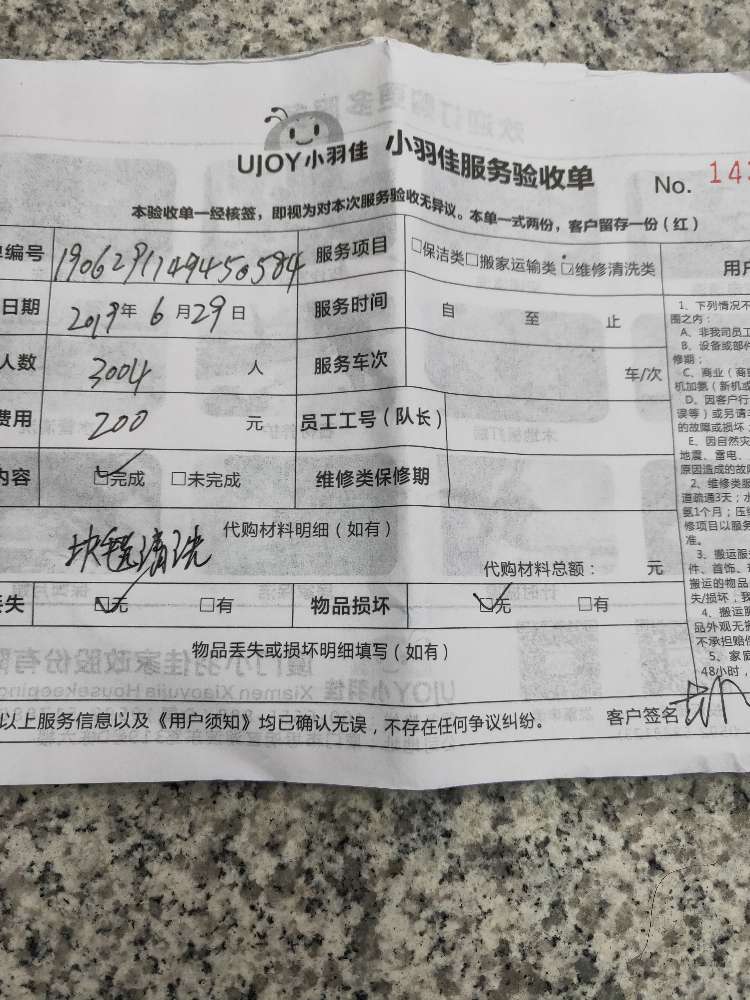 UJOY小羽佳 小羽佳服务验收单 No. 143
本验收单一经核签，即视为对本次服务验收无异议。本单一式两份，客户留存一份（红）
单编号 1906291749450584 服务项目 □保洁类□搬家运输类☑维修清洗类 用户
日期 2019年6月29日 服务时间 自 至 止
人数 3004 人 服务车次 车/次
费用 200 元 员工工号（队长）
内容 ☑完成 □未完成 维修类保修期
块毯清洗 代购材料明细（如有）
代购材料总额： 元
丢失 ☑无 □有 物品损坏 ☑无 □有
物品丢失或损坏明细填写（如有）
以上服务信息以及《用户须知》均已确认无误，不存在任何争议纠纷。 客户签名
1、下列情况不
围之内：
A、非我司员工
B、设备或部件
修期；
C、商业（商
机加氨（新机或
D、因客户行
误等）或另请
的故障或损坏
E、因自然灾
地震、雷电、
原因造成的故障
2、维修类服
道疏通3天；水
氨1个月；压缩
修项目以服务
准。
3、搬运服
件、首饰、
搬运的物品
失/损坏，我
4、搬运服
品外观无损
不承担赔偿
5、家庭
48小时，